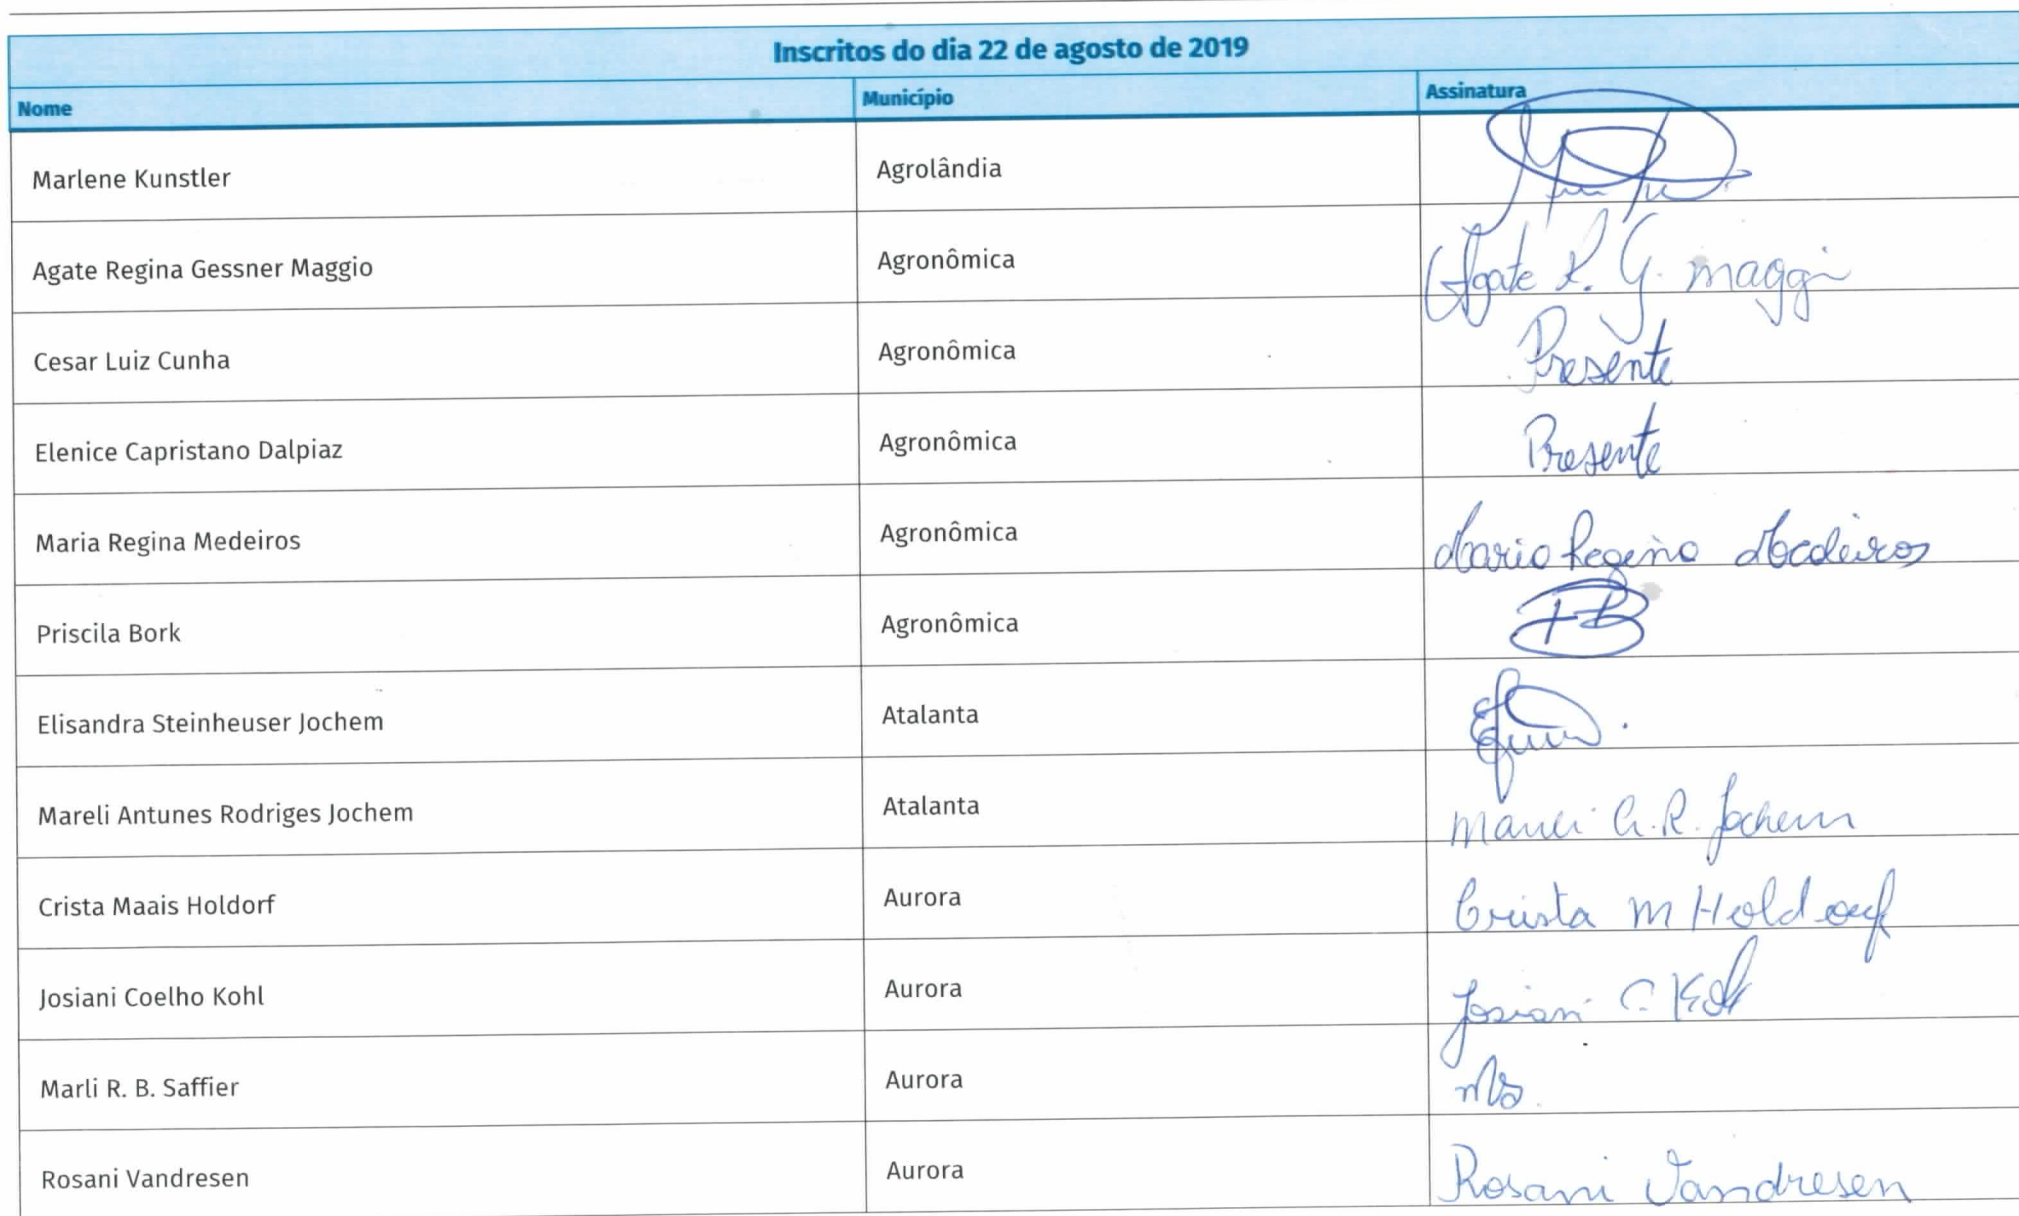 Inscritos do dia 22 de agosto de 2019
Nome Município Assinatura
Marlene Kunstler Agrolândia
Agate Regina Gessner Maggio Agronômica Agate R. G. Maggi
Cesar Luiz Cunha Agronômica Presente
Elenice Capristano Dalpiaz Agronômica Presente
Maria Regina Medeiros Agronômica Maria Regina Medeiros
Priscila Bork Agronômica PB
Elisandra Steinheuser Jochem Atalanta
Mareli Antunes Rodriges Jochem Atalanta Mareli A. R. Jochem
Crista Maais Holdorf Aurora Crista M Holdorf
Josiani Coelho Kohl Aurora Josiani C. Kohl
Marli R. B. Saffier Aurora MS.
Rosani Vandresen Aurora Rosani Vandresen